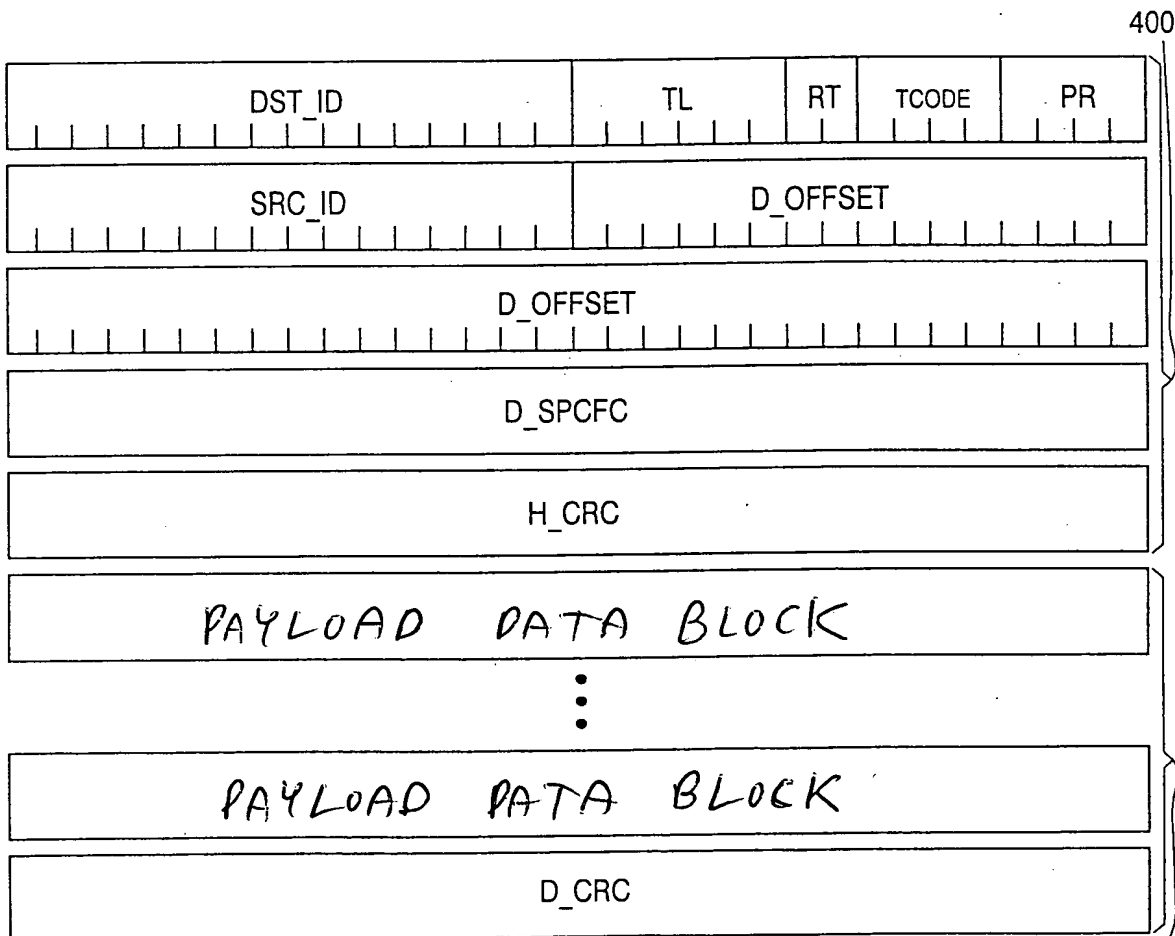 400
DST_ID TL RT TCODE PR
SRC_ID D_OFFSET
D_OFFSET
D_SPCFC
H_CRC
PAYLOAD DATA BLOCK
PAYLOAD DATA BLOCK
D_CRC